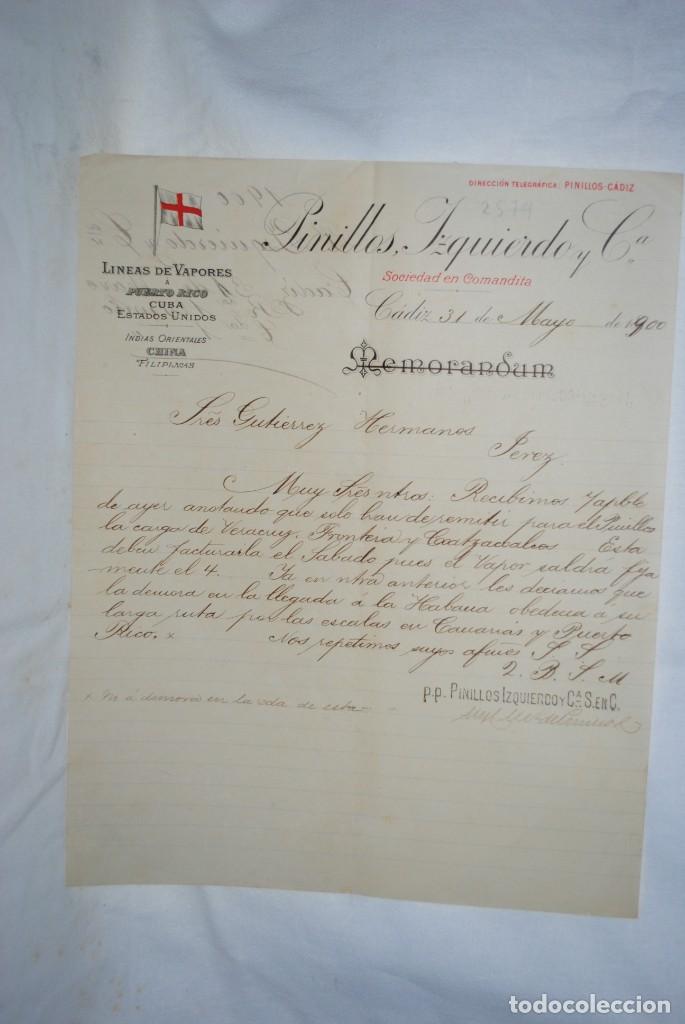 DIRECCIÓN TELEGRÁFICA: PINILLOS-CÁDIZ
2579
Pinillos, Izquierdo y Cª
Sociedad en Comandita
LINEAS DE VAPORES
A
PUERTO RICO
CUBA
ESTADOS UNIDOS
INDIAS ORIENTALES
CHINA
FILIPINAS
Cádiz 31 de Mayo de 1900
Memorandum
Sres Gutiérrez Hermanos
Jerez
Muy Sres ntros: Recibimos
de ayer anotando que solo han de remitir para el Pinillos
la carga de Veracruz, Frontera y Coatzacoalcos Esta
deben facturarla el Sabado pues el Vapor saldrá fija
mente el 4. Ya en ntra anterior les deciamos que
la demora en la llegada á la Habana obedecia á su
larga ruta por las escalas en Canarias y Puerto
Rico. x Nos repetimos suyos afmos S. S.
Q. B. S. M
p.p. PINILLOS IZQUIERDO Y Cª S. EN C.
x ni á demora en la sda de esta
todocoleccion